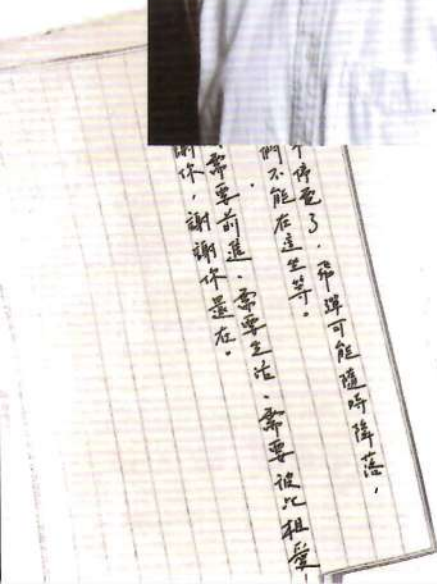 停電了，飛彈可能隨時降落，
們不能在這坐等。
需要前進、需要生活、需要彼此相愛
謝你，謝謝你還在。